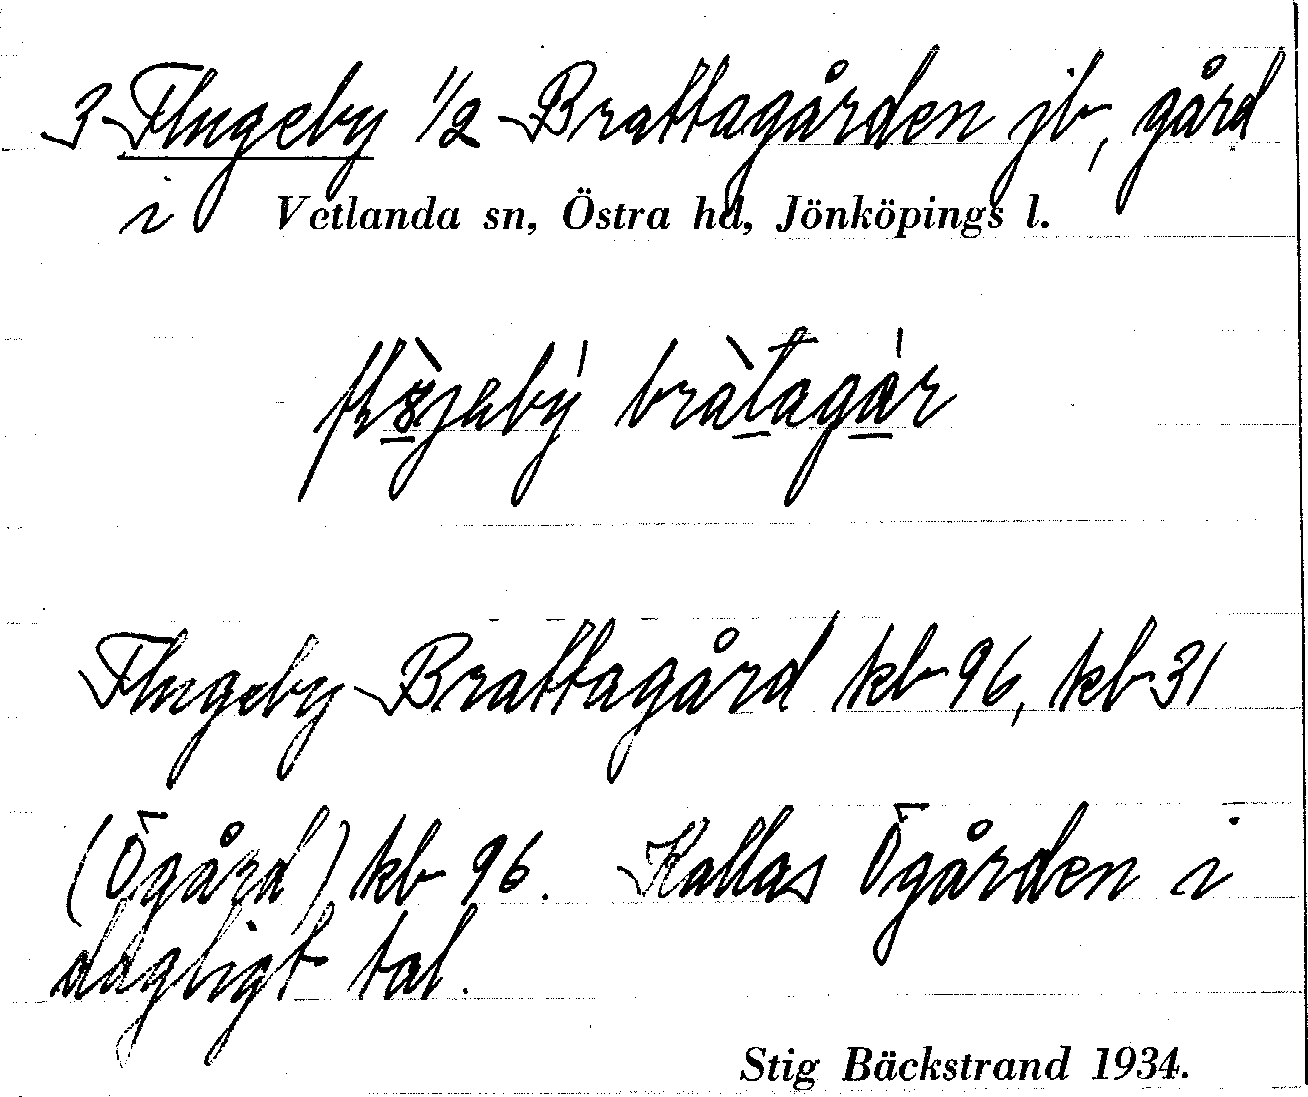 3 Flugeby 1/2 Brattagården jb, gård
i Vetlanda sn, Östra hd, Jönköpings l.
bràtagár
Flugeby Brattagård kb 96, kb 31
(Ögård) kb 96. Kallas Ögården i
dagligt tal.
Stig Bäckstrand 1934.